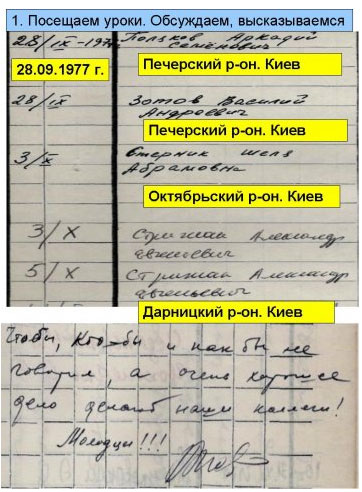 1. Посещаем уроки. Обсуждаем, высказываемся
28/IX-197
Поляков Аркадий
Семёнович
28.09.1977 г.
Печерский р-он. Киев
28/IX
Зотов Василий
Андреевич
Печерский р-он. Киев
3/X
Стерник Шеля
Абрамовна
Октябрьский р-он. Киев
3/X
Стрижак Александр
Евгениевич
5/X
Стрижак Александр
Евгеньевич
Дарницкий р-он. Киев
Чтобы, Кто-бы и как бы не
говорил, а очень хорошее
дело делают наши коллеги!
Молодцы!!!